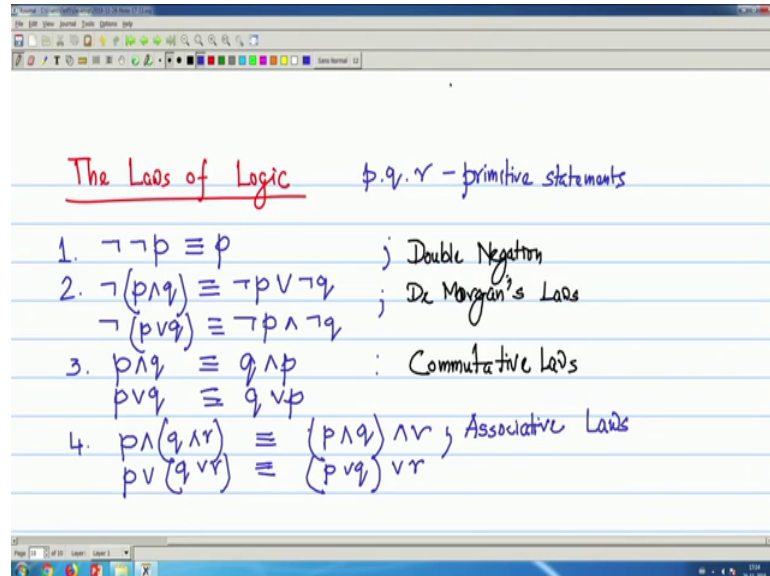 File Edit View Journal Tools Options Help
Sans Normal 12
The Laws of Logic p.q.r – primitive statements
1. ¬¬p ≡ p ; Double Negation
2. ¬(p∧q) ≡ ¬p∨¬q ; De Morgan's Laws
¬(p∨q) ≡ ¬p∧¬q
3. p∧q ≡ q∧p : Commutative Laws
p∨q ≡ q∨p
4. p∧(q∧r) ≡ (p∧q)∧r ; Associative Laws
p∨(q∨r) ≡ (p∨q)∨r
Page 10 of 10 Layer: Layer 1
17:14